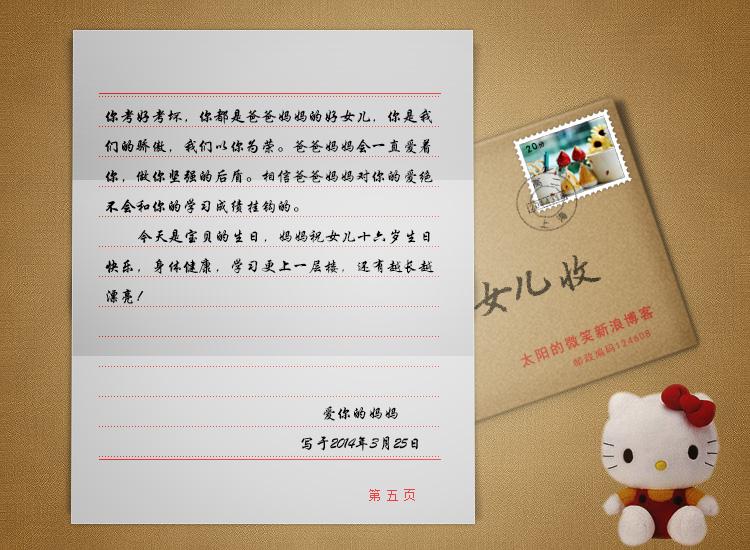 你考好考坏，你都是爸爸妈妈的好女儿，你是我
们的骄傲，我们以你为荣。爸爸妈妈会一直爱着
你，做你坚强的后盾。相信爸爸妈妈对你的爱绝
不会和你的学习成绩挂钩的。
今天是宝贝的生日，妈妈祝女儿十六岁生日
快乐，身体健康，学习更上一层楼，还有越长越
漂亮！
爱你的妈妈
写于2014年3月25日
第五页
20分
上海
女儿收
太阳的微笑新浪博客
邮政编码124608